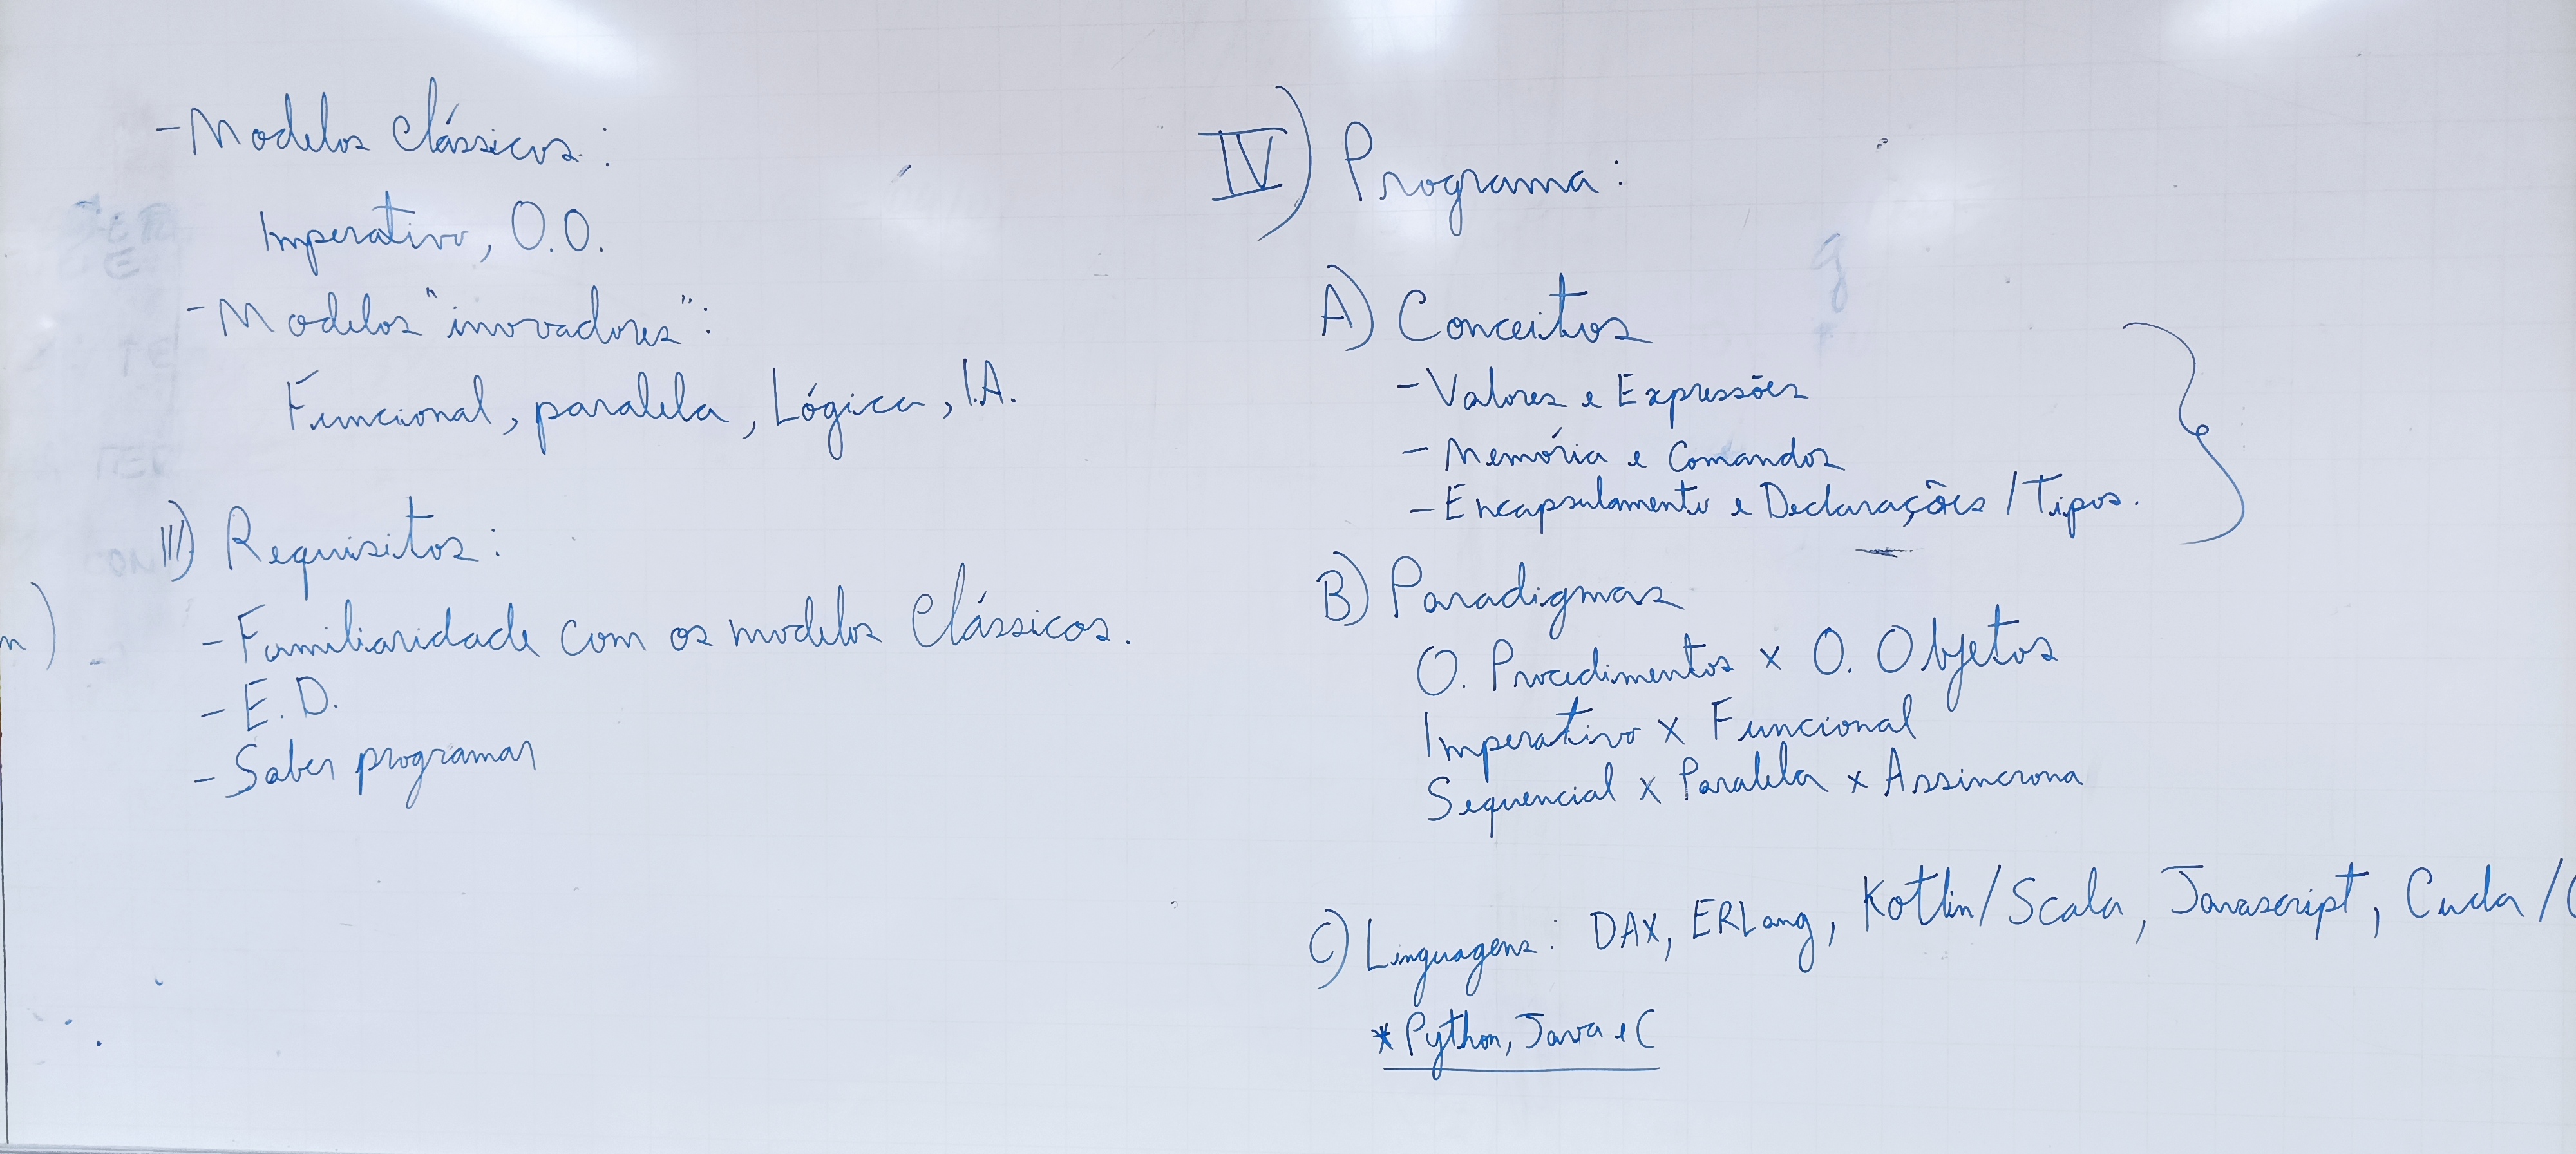 - Modelos Clássicos:
Imperativo, O.O.
- Modelos "inovadores":
Funcional, paralela, Lógica, I.A.
III) Requisitos:
- Familiaridade com os modelos Clássicos.
- E.D.
- Saber programar
IV) Programa:
A) Conceitos
- Valores e Expressões
- Memória e Comandos
- Encapsulamento e Declarações / Tipos.
B) Paradigmas
O. Procedimentos x O. Objetos
Imperativo x Funcional
Sequencial x Paralela x Assincrona
C) Linguagens: DAX, ERLang, Kotlin/Scala, Javascript, Cuda /
* Python, Java e C